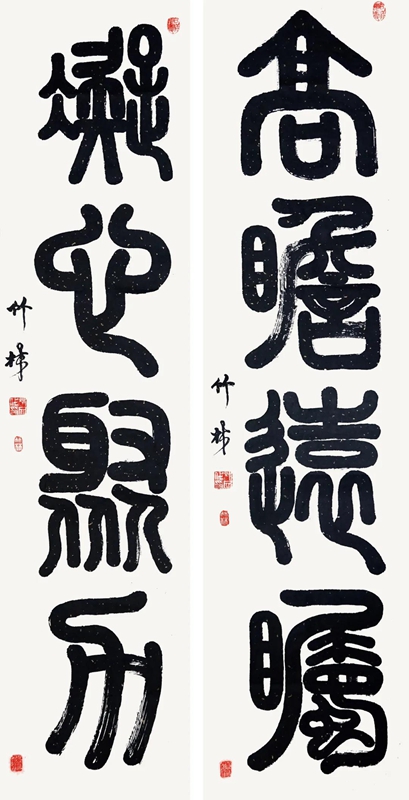 高瞻遠矚
竹林
凝心聚力
竹林